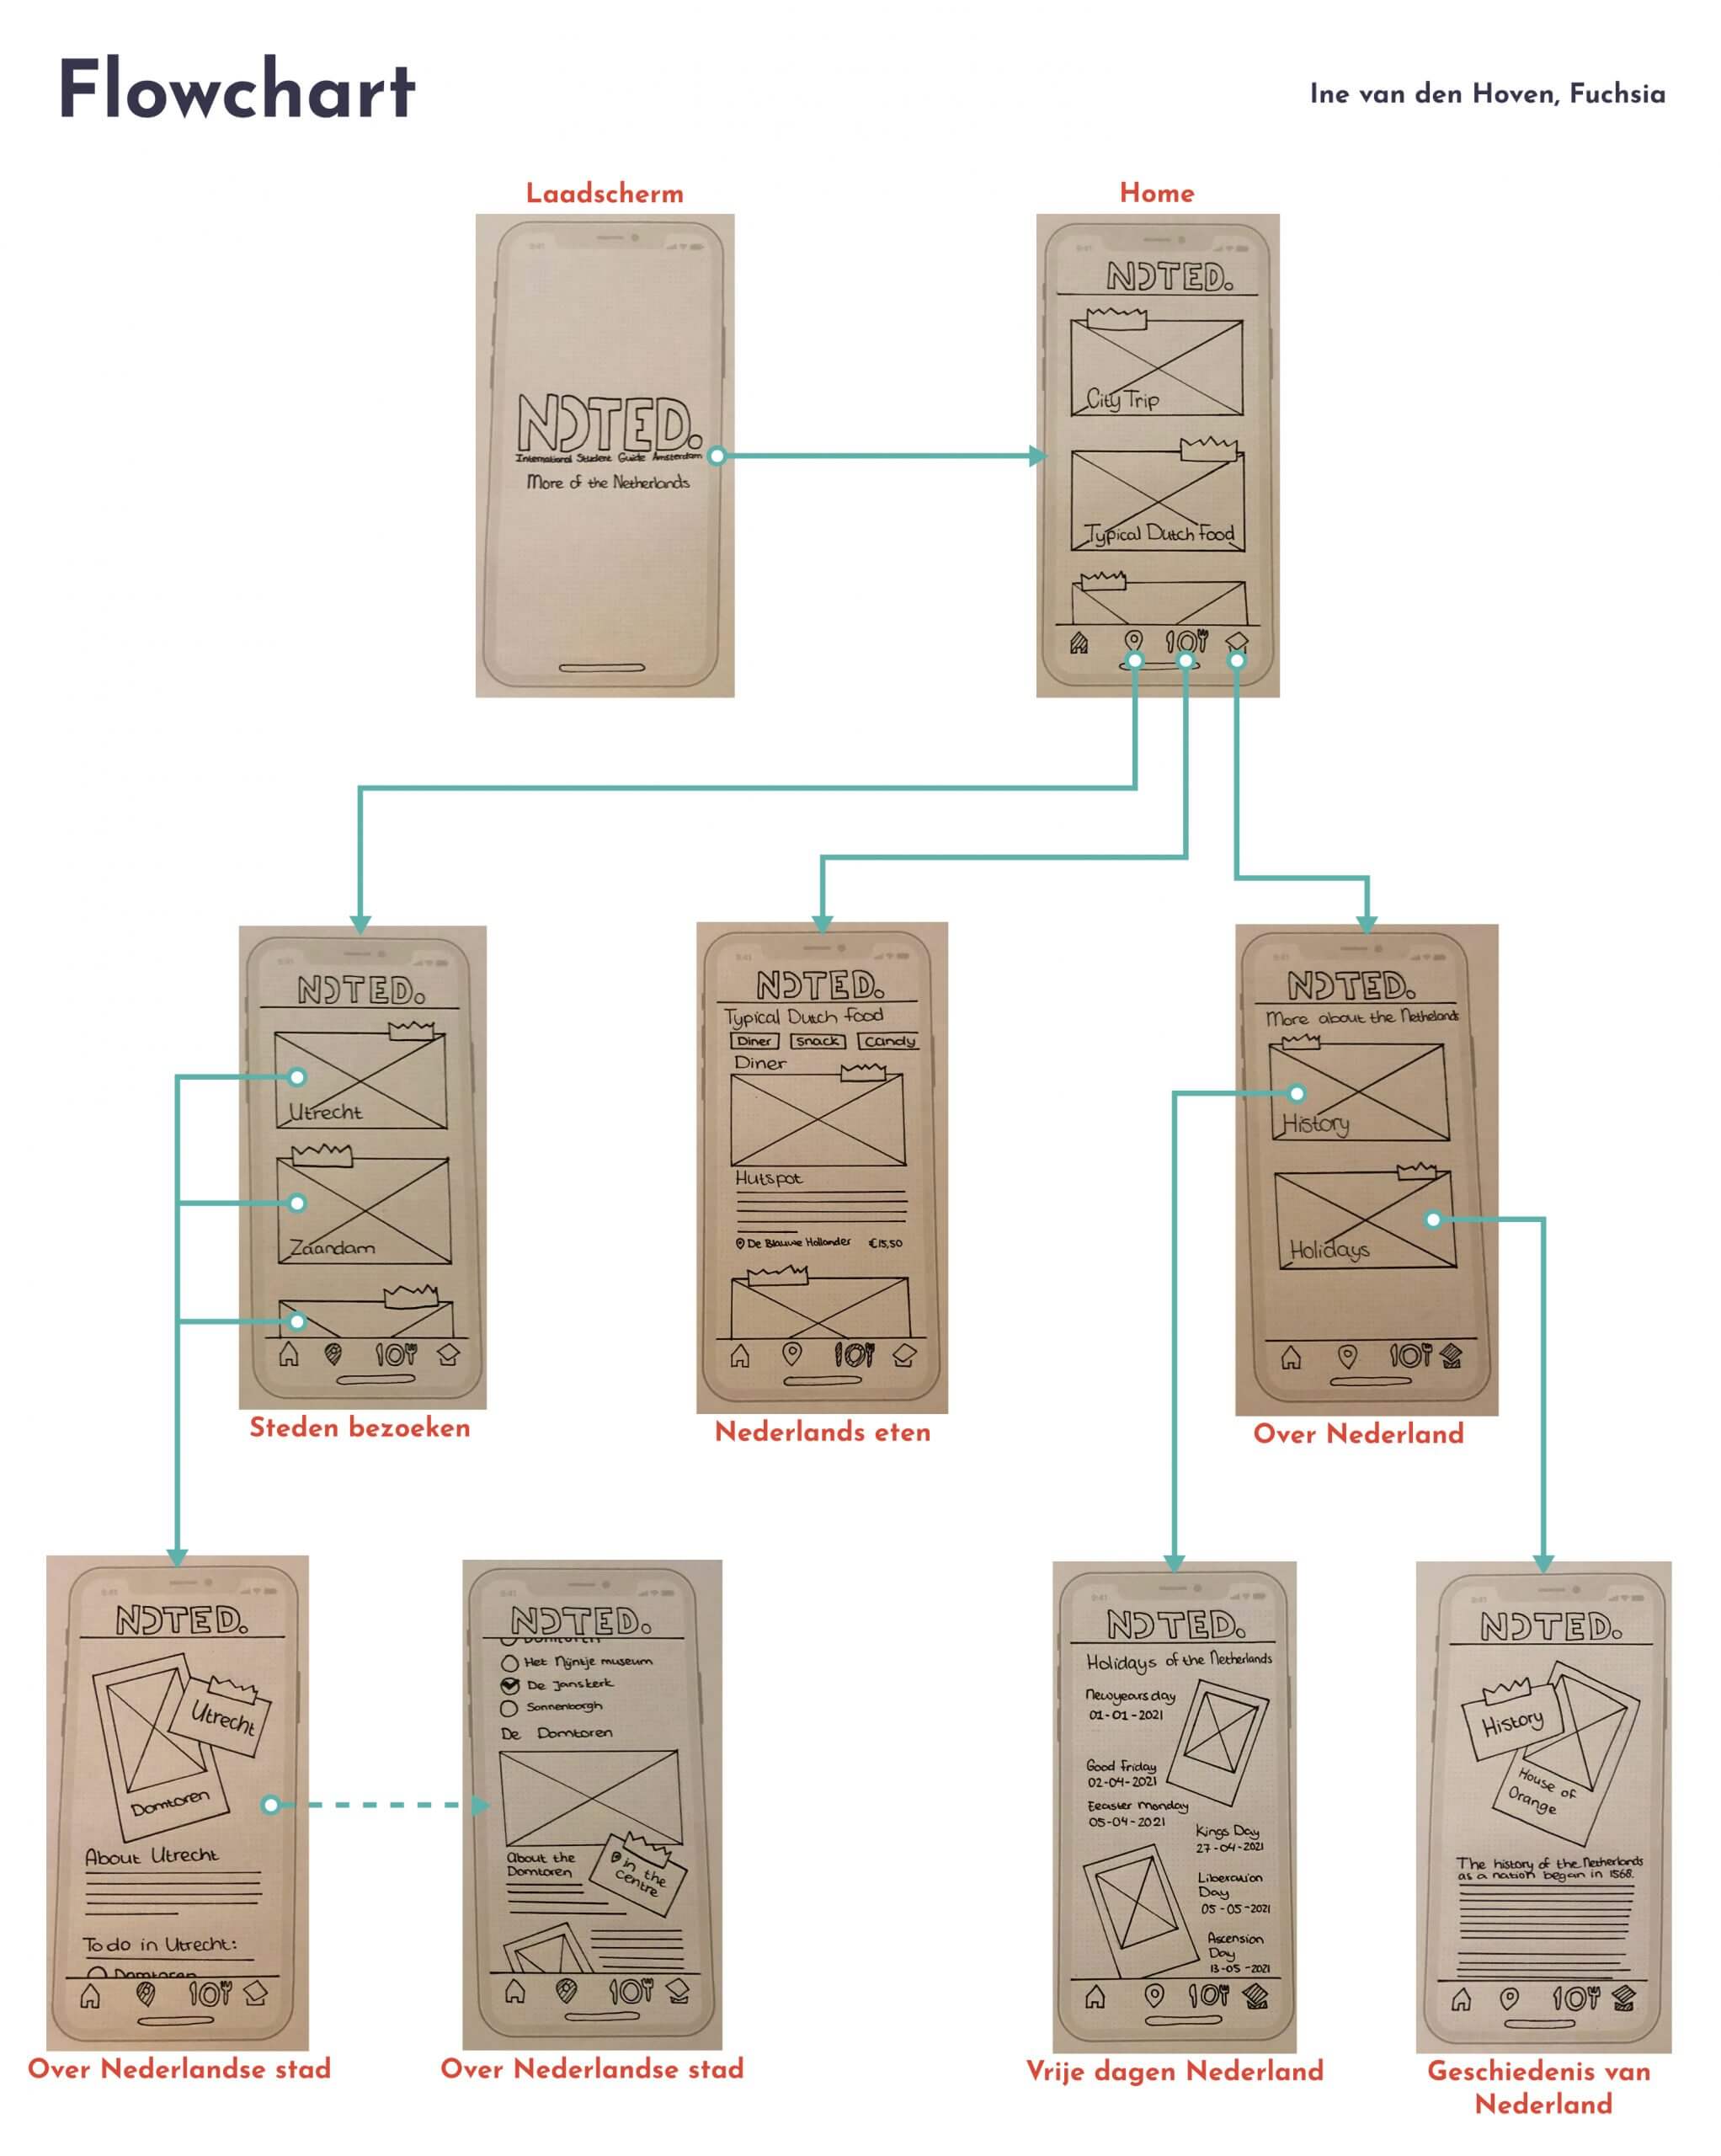 Flowchart
Ine van den Hoven, Fuchsia
Laadscherm
NOTED.
International Student Guide Amsterdam
More of the Netherlands
Home
NOTED.
City Trip
Typical Dutch Food
NOTED.
Utrecht
Zaandam
Steden bezoeken
NOTED.
Typical Dutch food
Diner Snack Candy
Diner
Hutspot
De Blauwe Hollander €15,50
Nederlands eten
NOTED.
More about the Nethelands
History
Holidays
Over Nederland
NOTED.
Utrecht
Domtoren
About Utrecht
To do in Utrecht:
Domtoren
Over Nederlandse stad
NOTED.
Domtoren
Het Nijntje museum
De Janskerk
Sonnenborgh
De Domtoren
About the
Domtoren
in the
centre
Over Nederlandse stad
NOTED.
Holidays of the Netherlands
Newyears day
01-01-2021
Good friday
02-04-2021
Eeaster monday
05-04-2021
Kings Day
27-04-2021
Liberation
Day
05-05-2021
Ascension
Day
13-05-2021
Vrije dagen Nederland
NOTED.
History
House of
Orange
The history of the Netherlands
as a nation began in 1568.
Geschiedenis van
Nederland